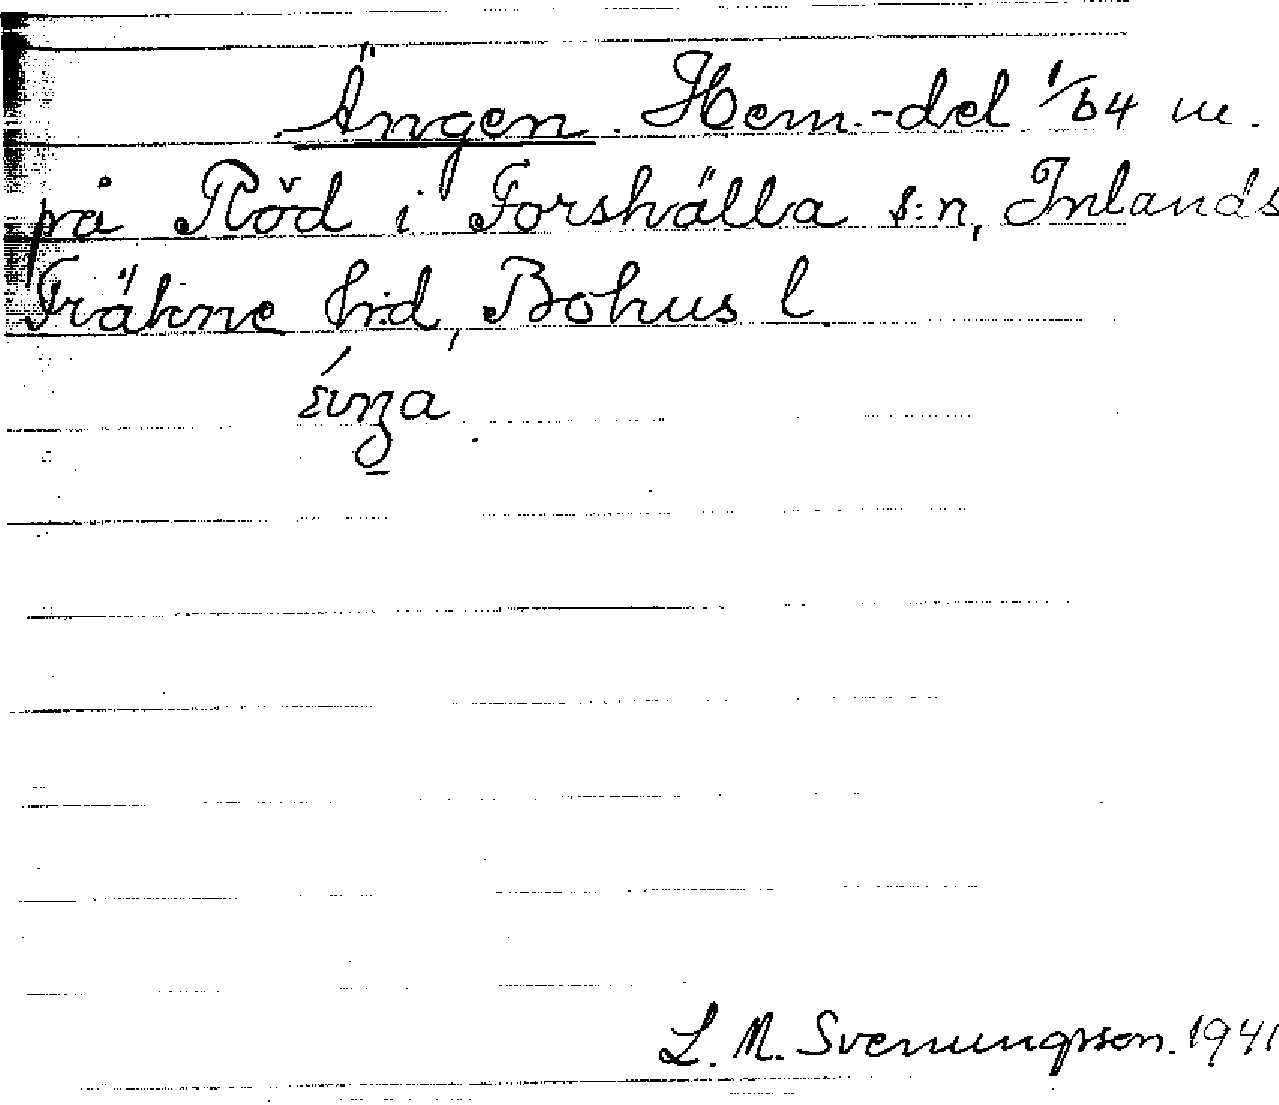 Ängen. Hem.-del 1/64 m.
på Röd i Forshälla s:n, Inlands
Fräkne h:d, Bohus l.
L. M. Svenungsson. 1941